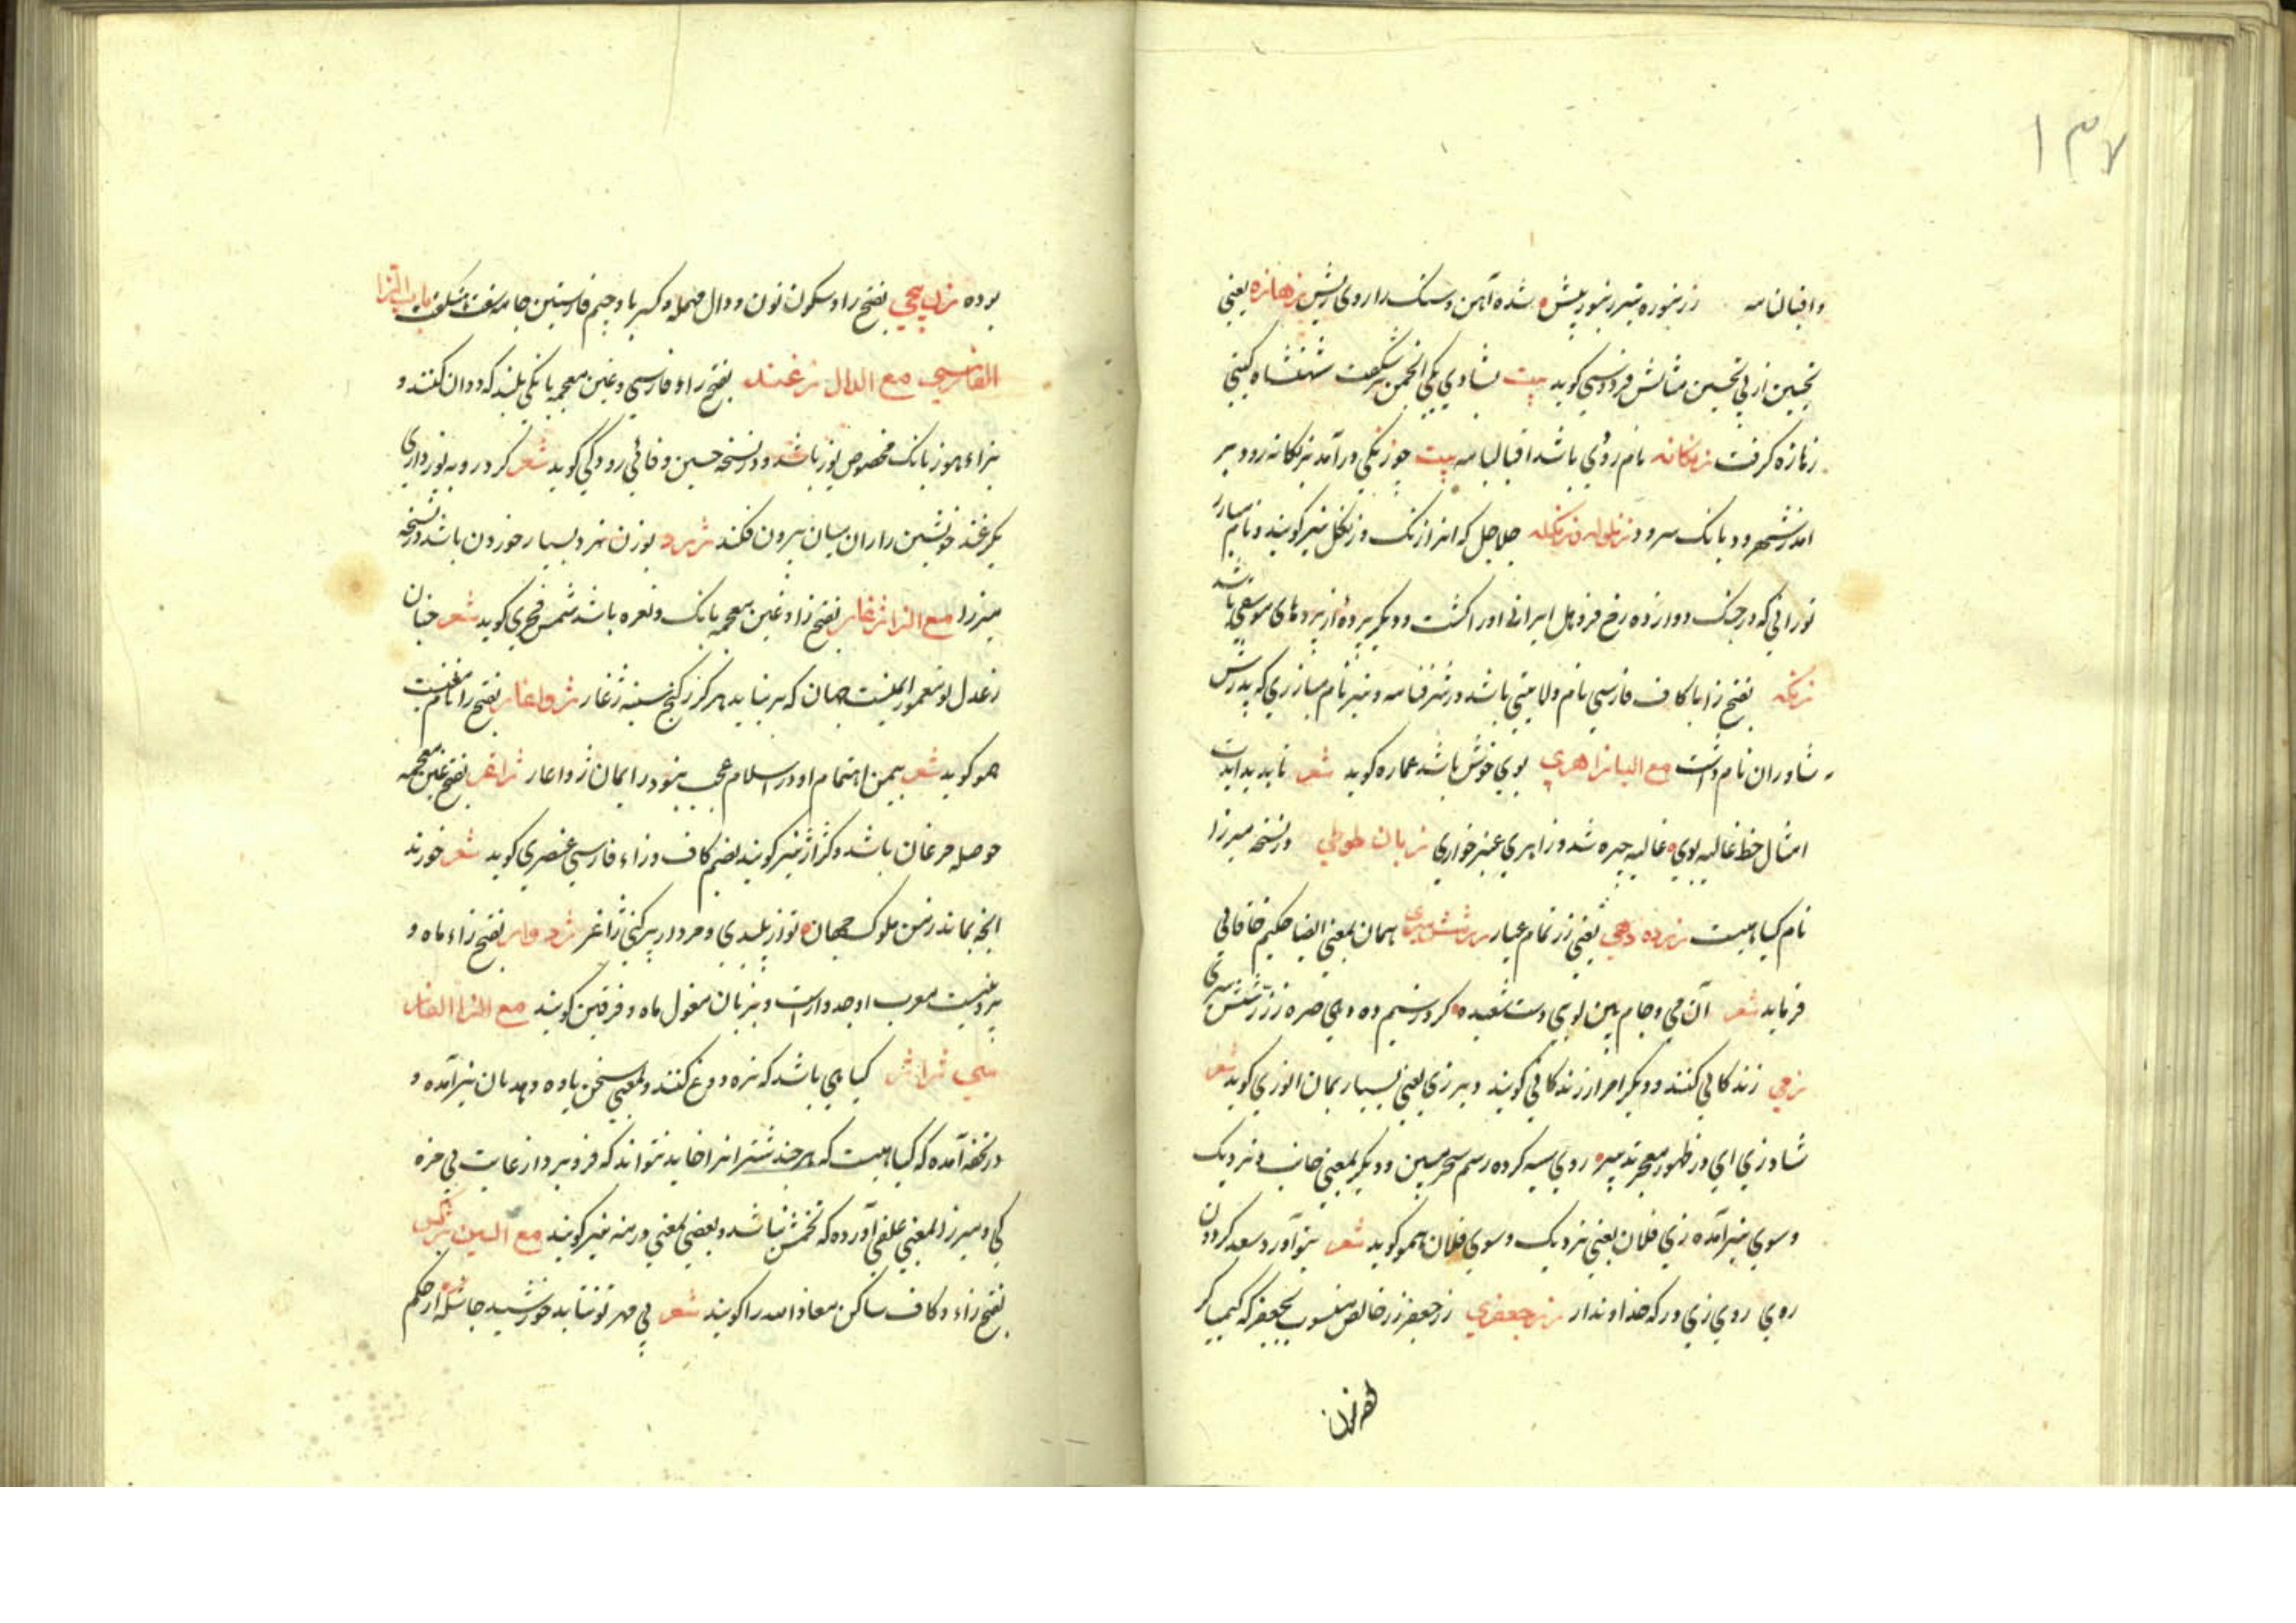 ۱۳۷
زنبوره تیر زنبور بیش شده آهن و سنک را روی ریش زهازه یعنی
تحسین از پی تحسین مثالش فردوسی کوید بیت بشادی یکی انجمن برشکفت شهنشاه کیتی
زهازه کرفت زنکانه نام رودی باشد اقبالنامه بیت چو زنکی درآمد بزنکانه رود بر
امد ز شهر رود بانک سرود زنکله جلاجل که انرا زنک و زنکل نیز کویند و نام مبارز
تورانی که در جنک دوازده رخ فروهل ایرانی او را کشت و دیکر پرده از پردهای موسیقی باشد
زنکه بفتح زا با کاف فارسی نام ولایتی باشد در شرفنامه و نیز نام مبارزی که پدرش
شاوران نام داشت مع الیا زاهری بوی خوش باشد عماره کوید شعر
امثال خط غالیه بوی غالیه چیره شد و زاهری عنبر خواری زبان طوطی در نسخه میرزا
نام کیاهیست زر ده دهی یعنی زر تمام عیار زر شش سری همان بمعنی ایضا حکیم خاقانی
فرماید شعر آن می و جام بین بهم کوی دست شعبده کرد ز سیم ده دهی صره زر شش سری
زی زندکانی کنند و دیکر امر از زندکانی کویند و دیر زی یعنی بسیار بمان انوری کوید شعر
شاد زی ای در ظهور معجز تدبیر روی سیه کرده رسم سحر مبین و دیکر بمعنی جانب و نزدیک
و سوی نیز آمده زی فلان یعنی نزدیک و سوی فلان همو کوید شعر نیز آورد سعد کردون
روی روی زی درکه خداوندار زر جعفری زر جعفر زر خالص منسوب بجعفر که کیمیاکر
بوده زند پیچی بفتح را و سکون نون و دال مهمله و کسر با و جیم فارسیتین جامه باب الزا
الفارسی مع الدال ژغند بفتح زاء فارسی و غین معجمه بانکی بلند که ددان کنند و
بزاء هوز بانک مخصوص یوز باشد و در نسخه حسین وفائی رودکی کوید شعر کرد روبه یوزواری
یک ژغند خویشتن را زان میان بیرون فکند ژرد بوزن نرد بسیار خوردن باشد در نسخه
میرزا مع الرا ژغار بفتح زا و غین معجمه بانک و نعره باشد شمس فخری کوید شعر چنان
ز عدل تو معمور ایمنیست جهان که بر نیاید هرکز ز کنج سینه ژغار ژواغار بفتح را نام مغنیست
همو کوید شعر بیمن اهتمام او در اسلام عجب نبود در ایمان ژواغار ژاغر بفتح غین معجمه
حوصله مرغان باشد و کژار نیز کویند بضم کاف و زاء فارسی عنصری کوید شعر خورند
انچه بماند ز من ملوک جهان تو از پلیدی و مردار پر کنی ژاغر ژدوار بفتح زاء ماه و
پروینست معرب او جدوارست و بزبان مغول ماه و فرفین کویند مع الزا الفار
سی ژاژ کیاهی باشد که تره دوغ کنند و بمعنی سخن یاوه و هذیان نیز آمده و
در تحفه آمده که کیاهیست که هر چند شتر انرا خاید نتواند که فرو برد از غایت بی مزه
کی و میرزا بمعنی علفی آورده که تخمش نباشد و بعضی بمعنی درمنه نیز کویند مع السین ژکس
بفتح زاء و کاف ساکن معاذ الله را کویند شعر بی مهر تو نتابد خورشید از حکم